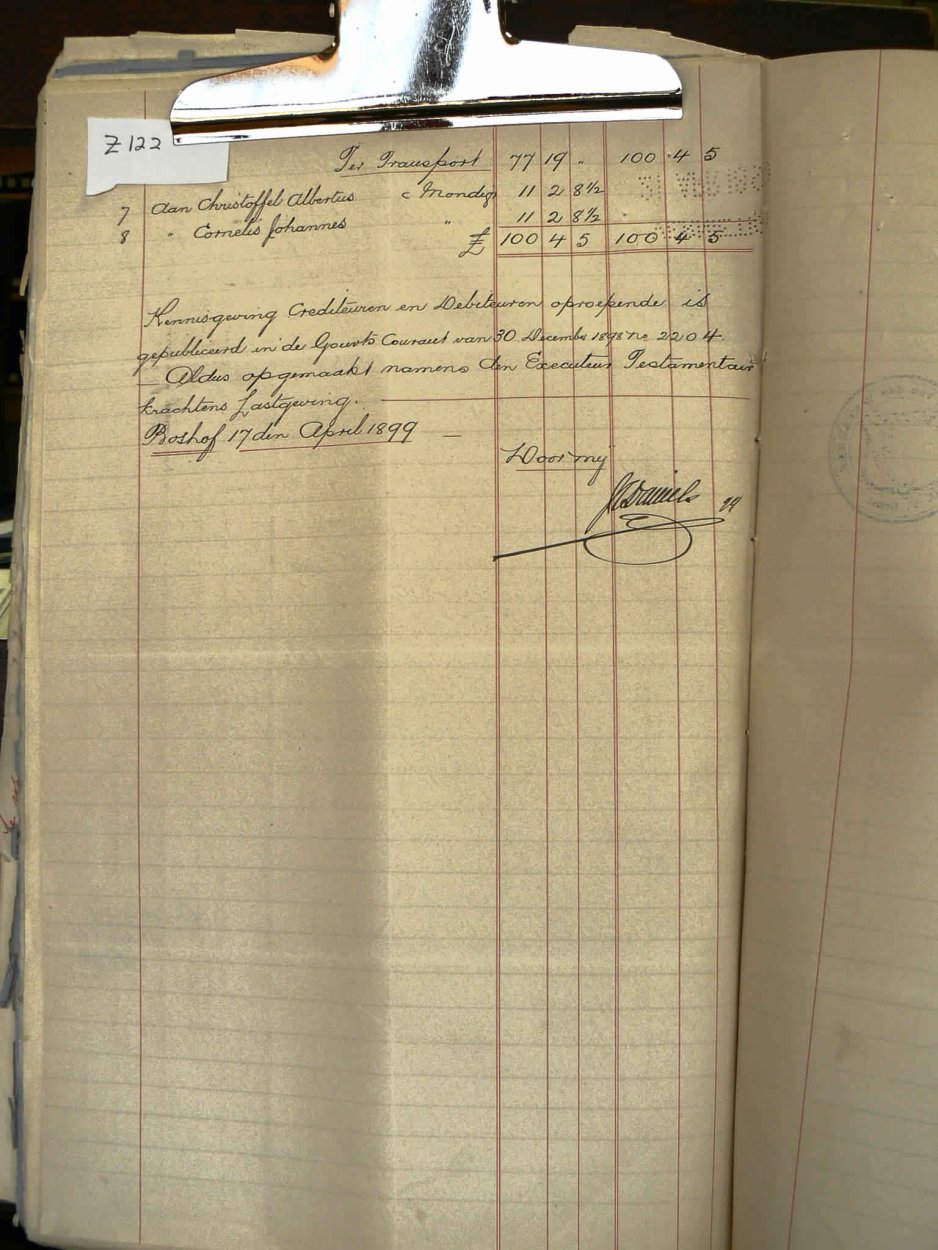 Z 122
Per Transport 77 19 „ 100 4 5
7 Aan Christoffel Albertus Mondig 11 2 8½
8 „ Cornelis Johannes „ 11 2 8½
£ 100 4 5 100 4 5
Kennisgeving Crediteuren en Debiteuren oproepende is
gepubliceerd in de Gouvts Courant van 30 December 1898 No 2204.
— Aldus opgemaakt namens den Executeur Testamentair
krachtens Lastgeving. —
Boshof 17den April 1899 —
Door my